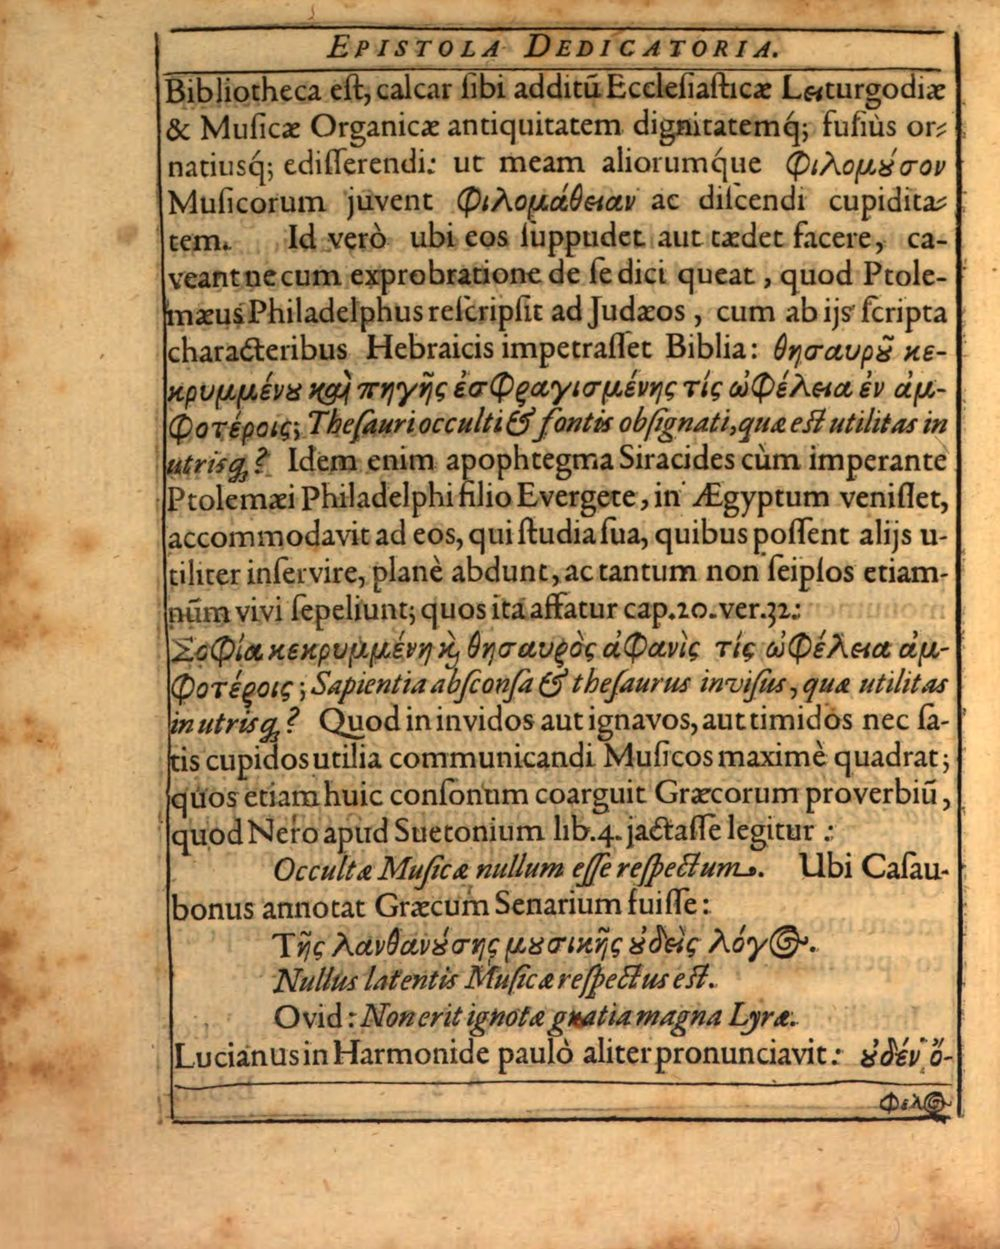 EPISTOLA DEDICATORIA.
Bibliotheca eſt, calcar ſibi additũ Eccleſiaſticæ Leiturgodiæ
& Muſicæ Organicæ antiquitatem dignitatemq́; fuſiùs or-
natiusq́; ediſſerendi: ut meam aliorumq́ue φιλομȣσον
Muſicorum juvent φιλομάθειαν ac diſcendi cupidita-
tem. Id verò ubi eos ſuppudet aut tædet facere, ca-
veant ne cum exprobratione de ſe dici queat, quod Ptole-
mæus Philadelphus reſcripſit ad Judæos, cum ab ijs ſcripta
characteribus Hebraicis impetraſſet Biblia: θησαυρȣ͂ κε-
κρυμμένȣ καὶ πηγῆς ἐσφραγισμένης τίς ὠφέλεια ἐν ἀμ-
φοτέροις; Theſauri occulti & fontis obſignati, quæ eſt utilitas in
utrisq;? Idem enim apophtegma Siracides cùm imperante
Ptolemæi Philadelphi filio Evergete, in Ægyptum veniſſet,
accommodavit ad eos, qui ſtudia ſua, quibus poſſent alijs u-
tiliter inſervire, planè abdunt, ac tantum non ſeipſos etiam-
nũm vivi ſepeliunt; quos ita affatur cap. 20. ver. 32:
Σοφία κεκρυμμένη κ̀ θησαυρὸς ἀφανὶς τίς ὠφέλεια ἀμ-
φοτέροις; Sapientia abſconſa & theſaurus inviſus, quæ utilitas
in utrisq;? Quod in invidos aut ignavos, aut timidos nec ſa-
tis cupidos utilia communicandi Muſicos maximè quadrat;
quos etiam huic conſonum coarguit Græcorum proverbiũ,
quod Nero apud Suetonium lib. 4. jactaſſe legitur:
Occultæ Muſicæ nullum eſſe reſpectum. Ubi Caſau-
bonus annotat Græcum Senarium fuiſſe:
Τῆς λανθανȣ́σης μȣσικῆς ȣ̓δεὶς λόγος.
Nullus latentis Muſicæ reſpectus eſt.
Ovid: Non erit ignotæ gratia magna Lyræ.
Lucianus in Harmonide paulò aliter pronunciavit: ȣ̓δέν ὄ-
φελος